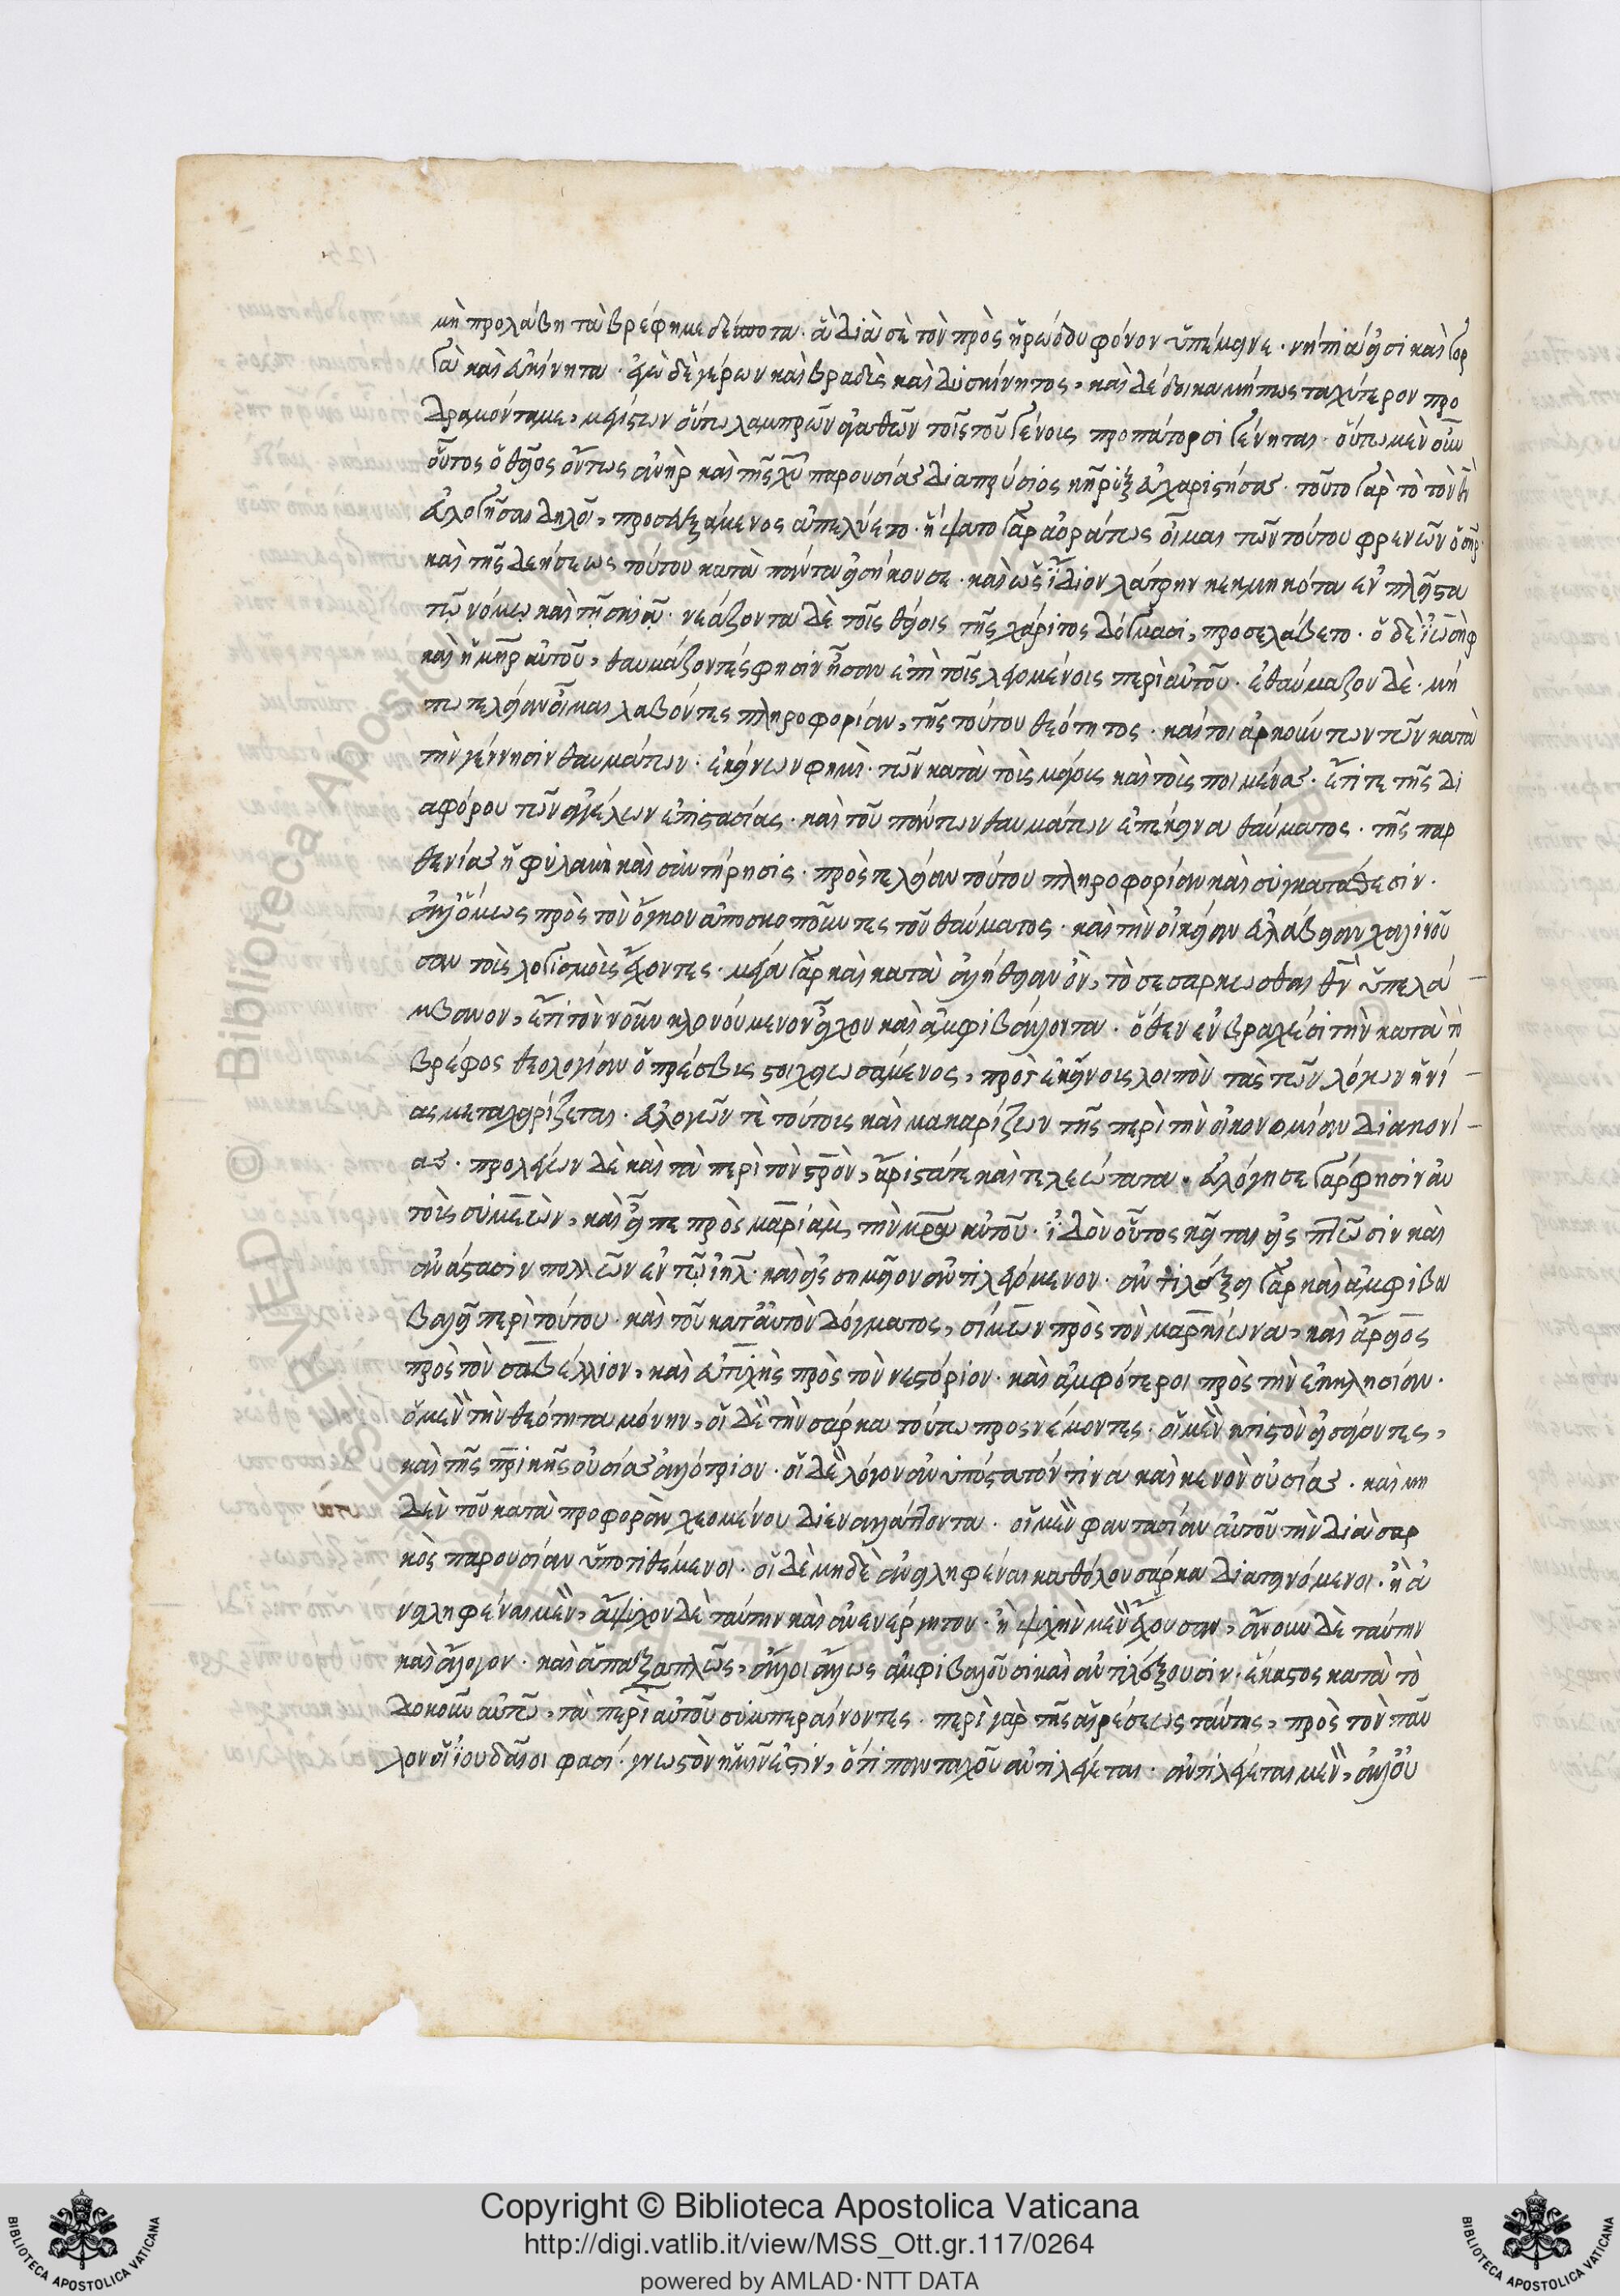 μὴ προλάβη τὰ βρέφη με δέσποτα· ἃ διὰ σὲ τὸν πρὸς ἡρώδου φόνον ὑπέμεινε· νήπιά εἰσι καὶ γορ
γὰ καὶ εὐκίνητα· ἐγὼ δὲ γέρων καὶ βραδὺς καὶ δυσκίνητος, καὶ δέδοικα μήπως ταχύτερον προ
δραμόντα με, μηνυταὶ τῶν οὕτω λαμπρῶν ἀγαθῶν τοῖς τοῦ γένους προπάτορσι γένηται· οὕτω μὲν οὖν
οὗτος ὁ θεῖος ὄντως ἀνὴρ καὶ τῆς χυ παρουσίας διαπρύσιος κῆρυξ εὐχαριστήσας· τοῦτο γὰρ τὸ τὸν θν
εὐλογῆσαι δηλοῖ, προσευξάμενος ἀπελύετο· ἥψατο γὰρ ἀοράτως οἶμαι τῶν τούτου φρενῶν ὁ σηρ
καὶ τῆς δεήσεως τούτου κατὰ πάντα εἰσήκουσε· καὶ ὡς ἴδιον λάτριν κεκμηκότα ἐν πλείστα
τῷ νόμῳ καὶ τῇ σκιᾷ· νεάζοντα δὲ τοῖς θείοις τῆς χάριτος δόγμασι, προσελάβετο· ὁ δὲ ἰωσὴφ
καὶ ἡ μηρ αὐτοῦ, θαυμάζοντές φησιν ἦσαν ἐπὶ τοῖς λεγομένοις περὶ αὐτοῦ· ἐθαύμαζον δὲ· μή
πω τελείαν οἶμαι λαβόντες πληροφορίαν, τῆς τούτου θεότητος· καίτοι ἀρκούντων τῶν κατὰ
τὴν γέννησιν θαυμάτων· ἐκείνων φημὶ· τῶν κατὰ τοὺς μάγους καὶ τοὺς ποιμένας· ἔτι τε τῆς δι
αφόρου τῶν ἀγγέλων ἐπιστασίας· καὶ τοῦ πάντων θαυμάτων ἐπέκεινα θαύματος· τῆς παρ
θενίας ἡ φυλακὴ καὶ συντήρησις· πρὸς τελείαν τούτου πληροφορίαν καὶ συγκατάθεσιν·
ἀλλ' ὅμως πρὸς τὸν ὄγκον ἀποσκοποῦντες τοῦ θαύματος· καὶ τὴν οἰκείαν εὐλάβειαν χαλινοῦ
σαν τοὺς λογισμοὺς ἔχοντες· μέγα γὰρ καὶ κατὰ ἀλήθειαν ὂν, τὸ σεσαρκῶσθαι θν ὑπελά
μβανον, ἔτι τὸν νοῦν κλονούμενον εἶχον καὶ ἀμφιβάλλοντα· ὅθεν ἐν βραχέσι τὴν κατὰ τὸ
βρέφος θεολογίαν ὁ πρέσβυς στοιχειωσάμενος, πρὸς ἐκείνους λοιπὸν τὰς τῶν λόγων ἡνί
ας μεταχειρίζεται· εὐλογῶν τὲ τούτους καὶ μακαρίζων τῆς περὶ τὴν οἰκονομίαν διακονί
ας· προλέγων δὲ καὶ τὰ περὶ τὸν σρὸν, ἄριστά τε καὶ τελεώτατα· εὐλόγησε γάρ φησιν αὐ
τοὺς συμεὼν, καὶ εἶπε πρὸς μαριὰμ τὴν μρα αὐτοῦ· ἰδοὺ οὗτος κεῖται εἰς πτῶσιν καὶ
ἀνάστασιν πολλῶν ἐν τῷ ιηλ· καὶ εἰς σημεῖον ἀντιλεγόμενον· ἀντιλέξει γὰρ καὶ ἀμφιβα
βαλεῖ περὶ τούτου καὶ τοῦ κατ' αὐτὸν δόγματος, σίμων πρὸς τὸν μαρκίωνα, καὶ ἄρειος
πρὸς τὸν σαβέλλιον, καὶ εὐτυχὴς πρὸς τὸν νεστόριον· καὶ ἀμφότεροι πρὸς τὴν ἐκκλησίαν·
ὁ μὲν τὴν θεότητα μόνην, οἱ δὲ τὴν σάρκα τούτω προσνέμοντες· οἱ μὲν κτιστὸν εἰσάγοντες,
καὶ τῆς πρικῆς οὐσίας ἀλλότριον· οἱ δὲ λόγον ἀνυπόστατόν τινα καὶ κενὸν οὐσίας· καὶ μη
δὲν τοῦ κατὰ προφορὰν χεομένου διεναλλάττοντα· οἱ μὲν φαντασίαν αὐτοῦ τὴν διὰ σαρ
κὸς παρουσίαν ὑποτιθέμενοι· οἱ δὲ μηδὲ ἀνειληφέναι καθόλου σάρκα διατεινόμενοι· ἢ ἀ
νειληφέναι μὲν, ἄψυχον δὲ ταύτην καὶ ἀνενέργητον· ἢ ψυχὴν μὲν ἔχουσαν, ἄνουν δὲ ταύτην
καὶ ἄλογον· καὶ ἁπαξαπλῶς, ἄλλοι ἄλλως ἀμφιβαλοῦσι καὶ ἀντιλέξουσιν· ἕκαστος κατὰ τὸ
δοκοῦν αὐτῶ, τὰ περὶ αὐτοῦ συμπεραίνοντες· περὶ γὰρ τῆς αἱρέσεως ταύτης, πρὸς τὸν παῦ
λον οἱ ἰουδαῖοι φασί· γνωστὸν ἡμῖν ἐστὶν, ὅτι πανταχοῦ ἀντιλέγεται· ἀντιλέγεται μὲν, ἀλλ' οὐ
Copyright © Biblioteca Apostolica Vaticana
http://digi.vatlib.it/view/MSS_Ott.gr.117/0264
powered by AMLAD·NTT DATA